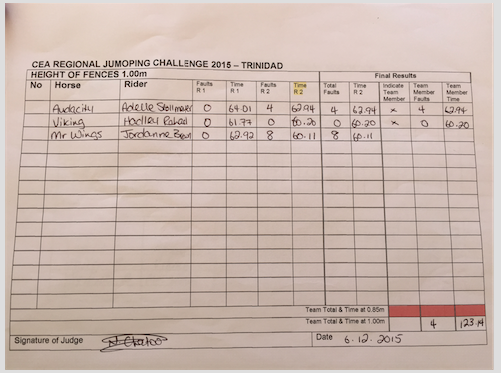 CEA REGIONAL JUMOPING CHALLENGE 2015 – TRINIDAD
HEIGHT OF FENCES 1.00m Final Results
No Horse Rider Faults R 1 Time R 1 Faults R 2 Time R 2 Total Faults Time R 2 Indicate Team Member Team Member Faults Team Member Time
Audacity Adelle Stollmeyer 0 64.01 4 62.94 4 62.94 x 4 62.94
Viking Hadley 0 61.77 0 60.20 0 60.20 x 0 60.20
Mr Wings Jordanne 0 62.92 8 60.11 8 60.11
Team Total & Time at 0.85m
Team Total & Time at 1.00m 4 123.14
Signature of Judge Date 6.12.2015